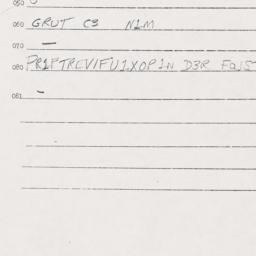 050
060 GRUT C3 N1M
070 —
080 PR1PTREVIFU1XOP1N D3R FQIS
081 -